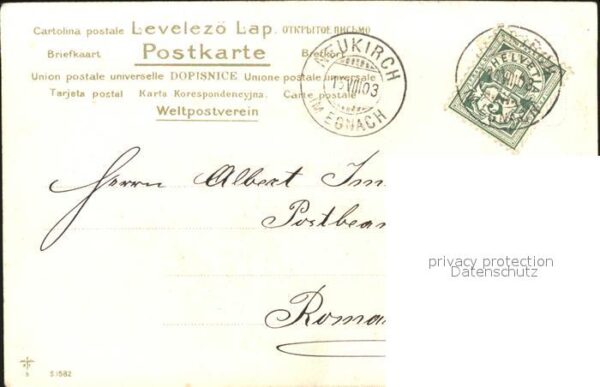 Cartolina postale Levelező Lap. ОТКРЫТОЕ ПИСЬМО
Briefkaart Postkarte Brefkort
Union postale universelle DOPISNICE Unione postale universale
Tarjeta postal Karta Korespondencyjna. Carte postale
Weltpostverein
NEUKIRCH
13 VIII 03
IM EGNACH
HELVETIA
5
Herrn Albert Im
Postbeam
Roma
privacy protection
Datenschutz
S.1582